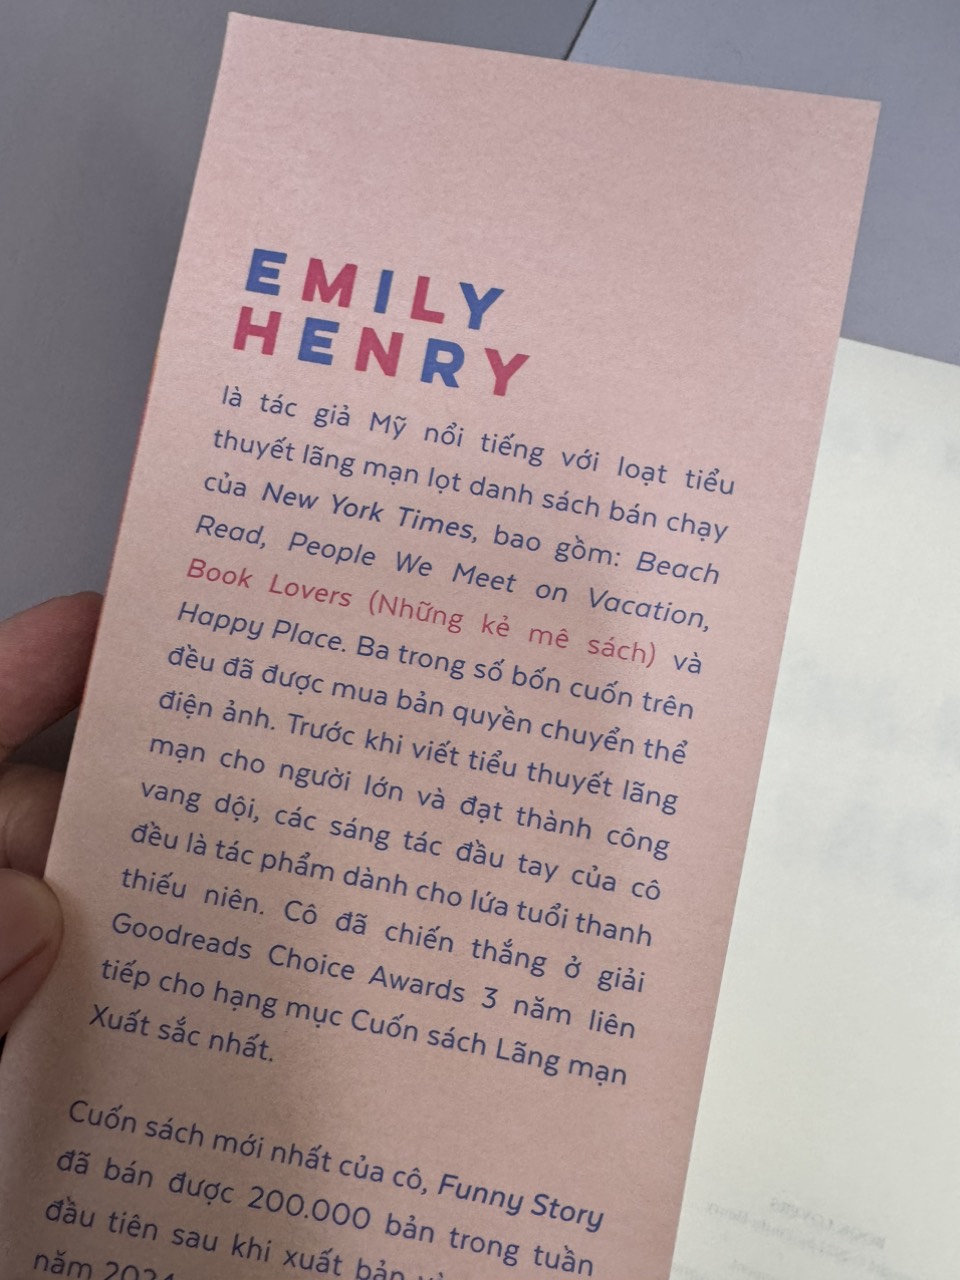 EMILY
HENRY
là tác giả Mỹ nổi tiếng với loạt tiểu
thuyết lãng mạn lọt danh sách bán chạy
của New York Times, bao gồm: Beach
Read, People We Meet on Vacation,
Book Lovers (Những kẻ mê sách) và
Happy Place. Ba trong số bốn cuốn trên
đều đã được mua bản quyền chuyển thể
điện ảnh. Trước khi viết tiểu thuyết lãng
mạn cho người lớn và đạt thành công
vang dội, các sáng tác đầu tay của cô
đều là tác phẩm dành cho lứa tuổi thanh
thiếu niên. Cô đã chiến thắng ở giải
Goodreads Choice Awards 3 năm liên
tiếp cho hạng mục Cuốn sách Lãng mạn
Xuất sắc nhất.
Cuốn sách mới nhất của cô, Funny Story
đã bán được 200.000 bản trong tuần
đầu tiên sau khi xuất bản
năm 2024